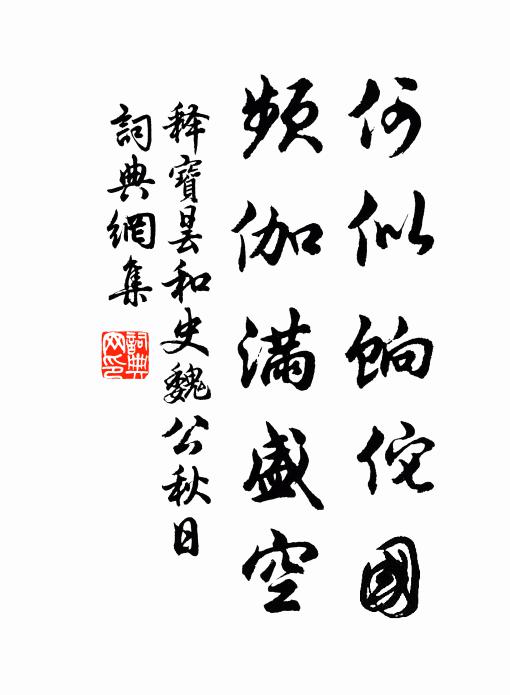 何似餉佗國
頻伽滿盛空
释寶昙和史魏公秋日
詞典網集
詞典網印